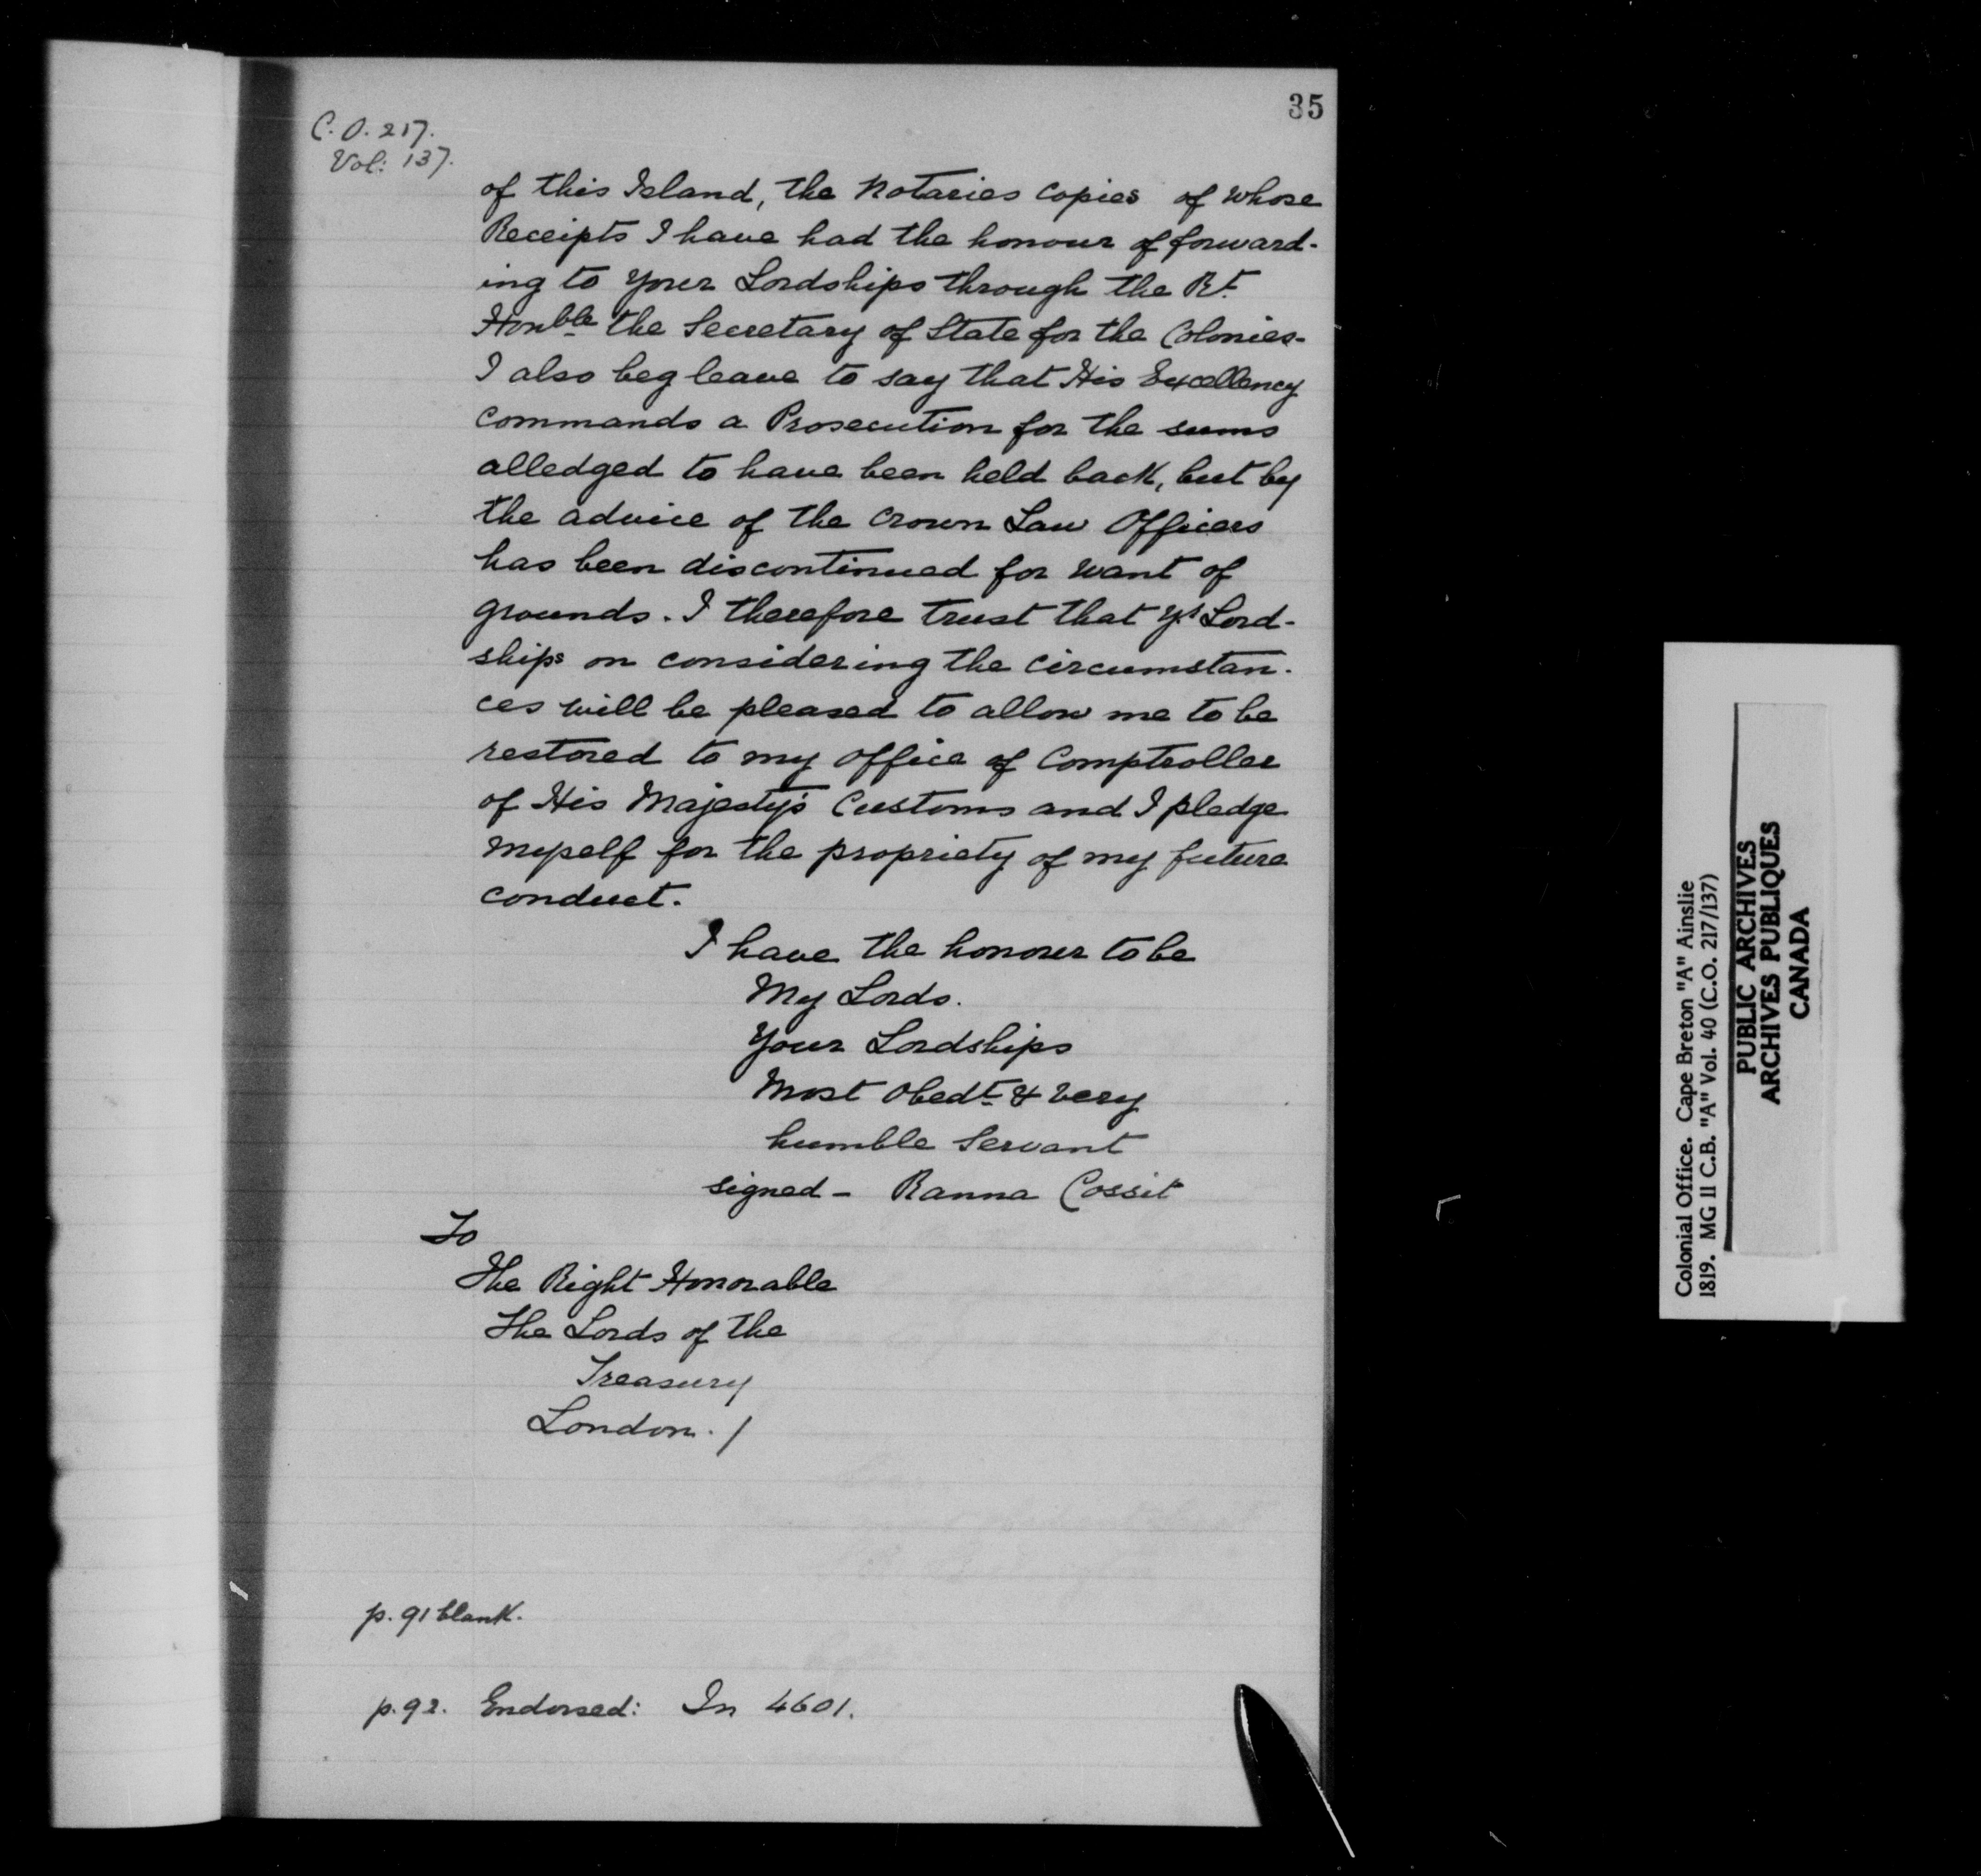 35
C. O. 217.
Vol: 137.
of this Island, the Notaries copies of whose
Receipts I have had the honour of forward-
ing to Your Lordships through the Rt
Honble the Secretary of State for the Colonies-
I also beg leave to say that His Excellency
commands a Prosecution for the sums
alledged to have been held back, but by
the advice of the Crown Law Officers
has been discontinued for want of
grounds. I therefore trust that Yr Lord-
ships on considering the circumstan-
ces will be pleased to allow me to be
restored to my office of Comptroller
of His Majesty's Customs and I pledge
myself for the propriety of my future
conduct.
I have the honour to be
My Lords.
Your Lordships
Most Obedt & very
humble Servant
signed - Ranna Cossit
To
The Right Honorable
The Lords of the
Treasury
London. /
p. 91 blank.
p. 92. Endorsed: In 4601.
Colonial Office. Cape Breton "A" Ainslie
1819. MG 11 C.B. "A" Vol. 40 (C.O. 217/137)
PUBLIC ARCHIVES
ARCHIVES PUBLIQUES
CANADA